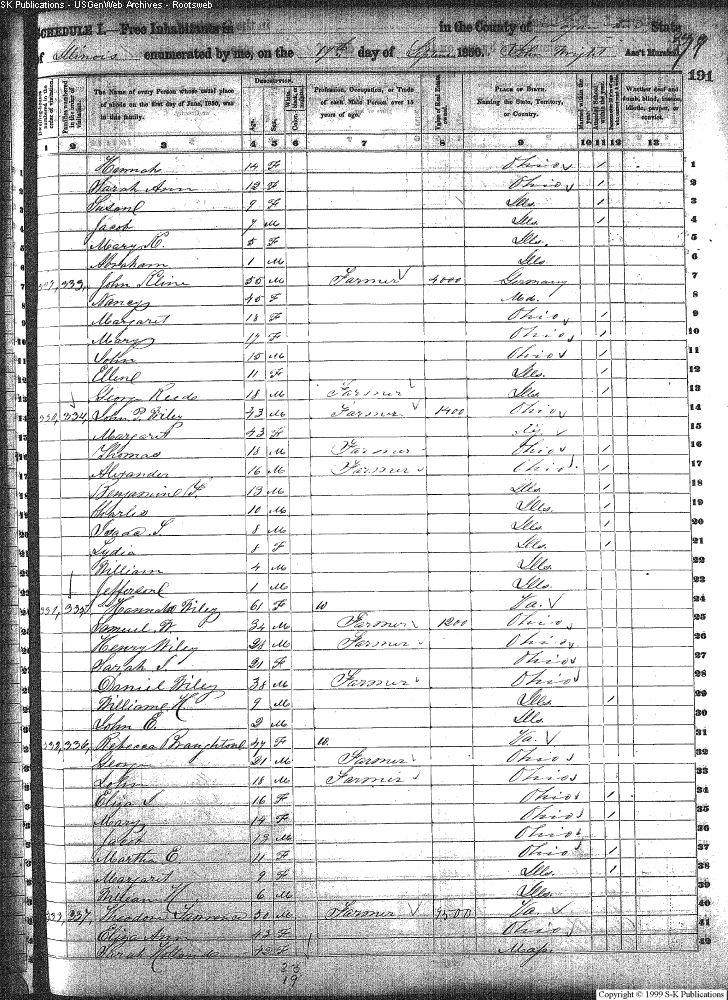 SK Publications - USGenWeb Archives - Rootsweb
SCHEDULE I.—Free Inhabitants in in the County of State
of Illinois enumerated by me, on the day of 1850. John Wright Ass't Marshal
191
The Name of every Person whose usual place of abode on the first day of June, 1850, was in this family.
DESCRIPTION.
Age.
Sex.
Profession, Occupation, or Trade of each Male Person over 15 years of age.
Value of Real Estate owned.
PLACE OF BIRTH. Naming the State, Territory, or Country.
Whether deaf and dumb, blind, insane, idiotic, pauper, or convict.
1 2 3 4 5 6 7 8 9 10 11 12 13
1 Hannah 14 F Ohio / 1
2 Sarah Ann 12 F Ohio / 2
3 Susan 9 F Ills. / 3
4 Jacob 7 M Ills. / 4
5 Mary K. 5 F Ills. 5
6 Abraham 1 M Ills. 6
7 333 John Kline 55 M Farmer 4000 Germany 7
8 Nancy 45 F Md. 8
9 Margaret 18 F Ohio / 9
10 Mary 17 F Ohio / 10
11 John 15 M Ohio / 11
12 Ellen 11 F Ills. / 12
13 George Reeds 18 M Farmer Ills. / 13
14 334 John P. Wiley 43 M Farmer 1400 Ohio 14
15 Margaret 43 F Ky 15
16 Thomas 18 M Farmer Ohio / 16
17 Alexander 16 M Farmer Ohio / 17
18 Benjamin F. 13 M Ills. / 18
19 Charles 10 M Ills. / 19
20 Isaac S. 8 M Ills. / 20
21 Lydia 8 F Ills. / 21
22 William 4 M Ills. 22
23 Jefferson 1 M Ills. 23
24 335 Hannah Wiley 61 F W Va. 24
25 Samuel W. 34 M Farmer 1200 Ohio 25
26 Henry Wiley 24 M Farmer Ohio 26
27 Sarah J. 21 F Ohio 27
28 Daniel Wiley 38 M Farmer Ohio 28
29 William H. 9 M Ills. / 29
30 John E. 2 M Ills. 30
31 332, 336, Rebecca Broughton 47 F W. Va. 31
32 George 21 M Farmer Ohio 32
33 John 18 M Farmer Ohio 33
34 Eliza J. 16 F Ohio / 34
35 Mary 14 F Ohio / 35
36 Jacob 13 M Ohio 36
37 Martha E. 11 F Ohio / 37
38 Margaret 9 F Ills. / 38
39 William H. 6 M Ills. 39
40 333, 337, Theodore 50 M Farmer Va. 40
41 Eliza Ann 43 F Ohio 41
42 Sarah F Mass. 42
19
Copyright © 1999 S-K Publications